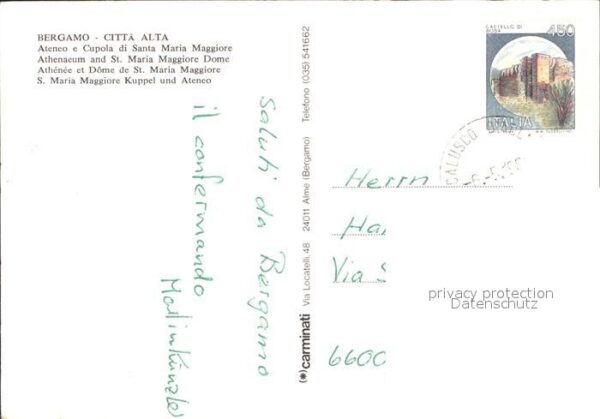 BERGAMO - CITTÀ ALTA
Ateneo e Cupola di Santa Maria Maggiore
Athenaeum and St. Maria Maggiore Dome
Athénée et Dôme de St. Maria Maggiore
S. Maria Maggiore Kuppel und Ateneo
CASTELLO DI
450
ITALIA
CALUSCO
Saluti da Bergamo
il confermando
Martin Künzle
(*)carminati Via Locatelli, 48 24011 Almè (Bergamo) Telefono (035) 541662
Herrn
Ha
Via S
6600
privacy protection
Datenschutz